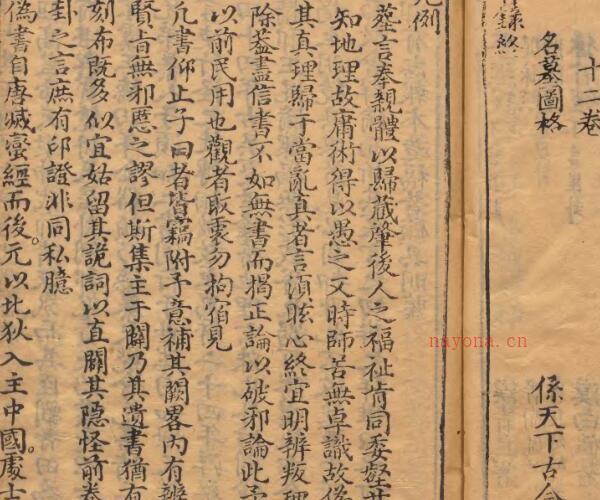 十二卷
名墓圖格
係天下古
凡例
葬言奉親體以歸藏肇後人之福祉肯同委壑
知地理故庸術得以愚之又時師苦無卓識故偽
其真理歸于當亂真者言須眩心終宜明辨叛理
除蓋盡信書不如無書而揭正論以破邪論此
以前民用也觀者取衷勿拘宿見
凡書仰止子曰者皆竊附予意補其闕畧內有辨
賢旨無邪慝之謬但斯集主于闢乃其遺書猶有
刻布既多似宜姑留其詭詞以直闢其隱怪前卷
卦之言庶有印證非同私臆
偽書自唐滅蠻經而後元以北狄入主中國處士
nayona.cn